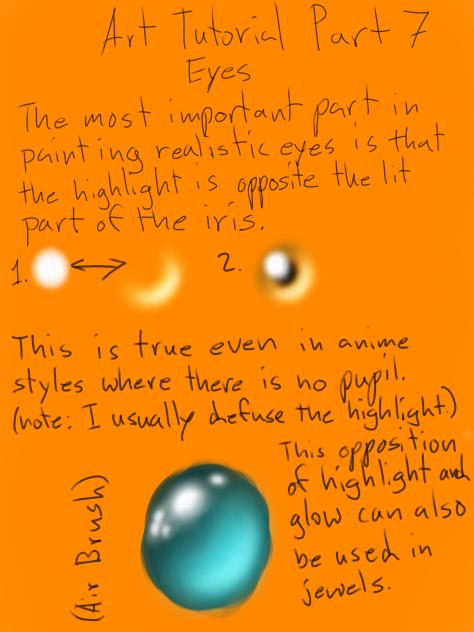 Art Tutorial Part 7
Eyes
The most important part in
painting realistic eyes is that
the highlight is opposite the lit
part of the iris.
1.
2.
This is true even in anime
styles where there is no pupil.
(note: I usually defuse the highlight.)
This opposition
of highlight and
glow can also
be used in
jewels.
(Air Brush)